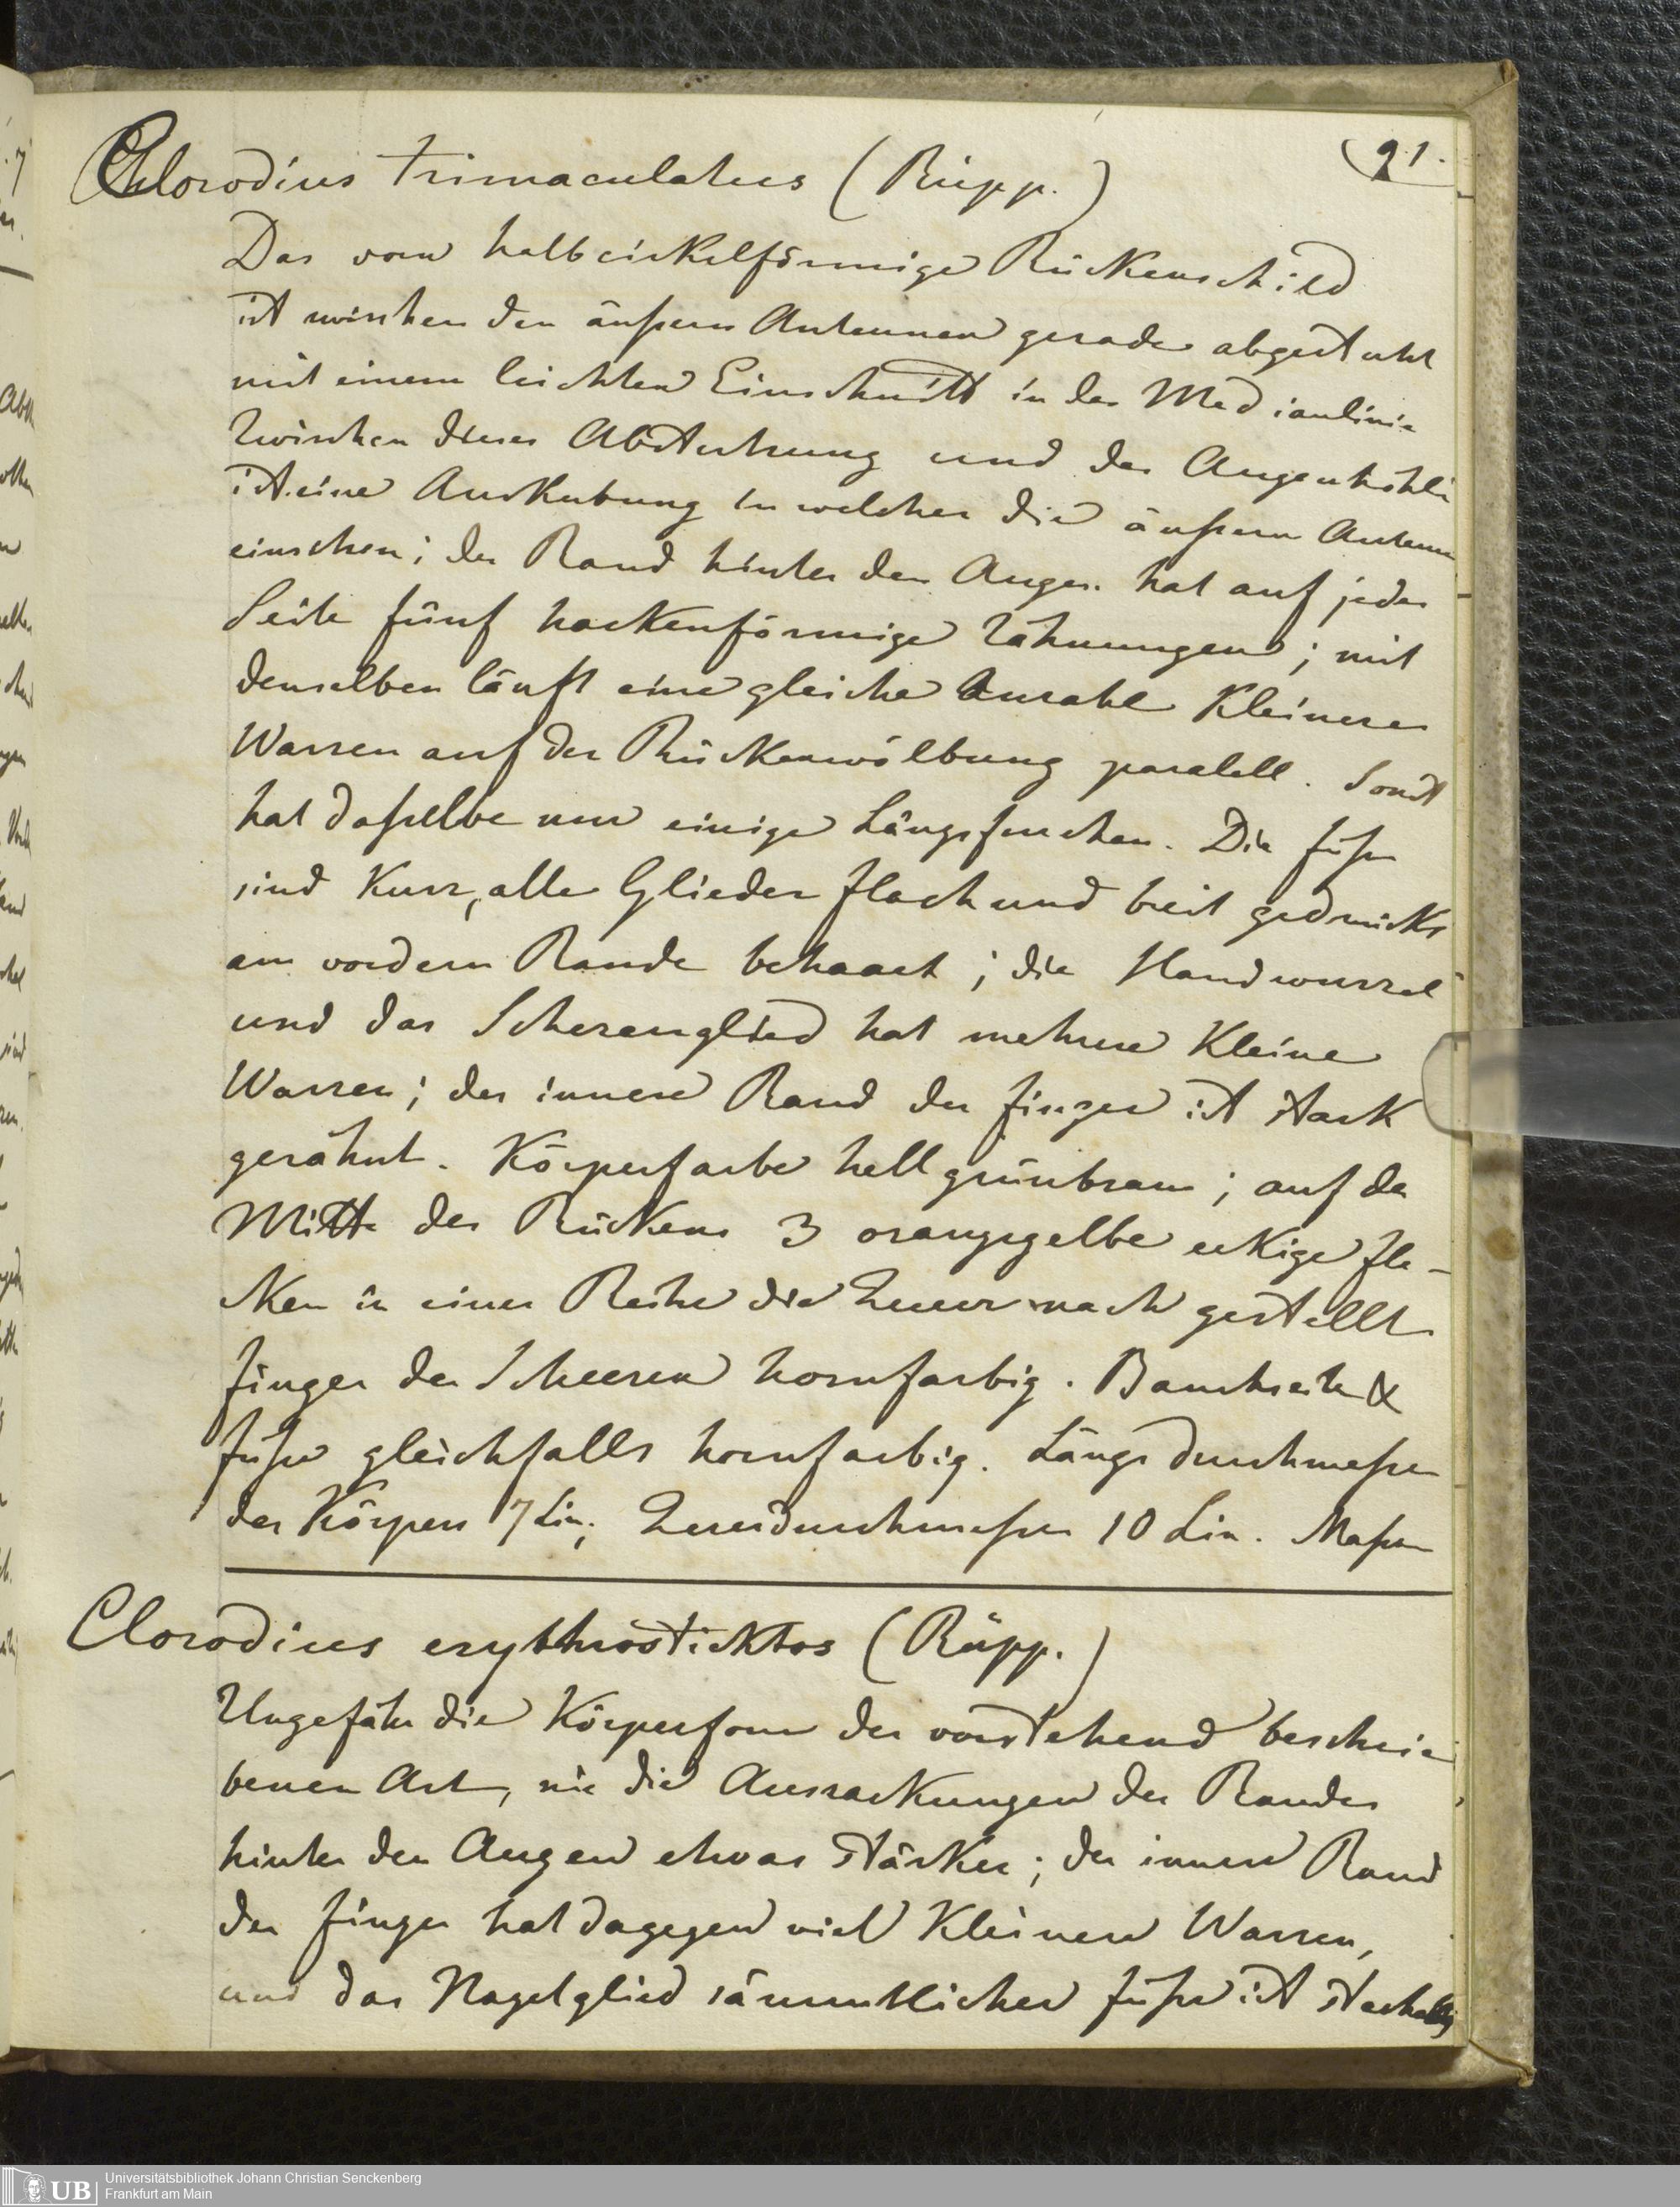 21.
Chlorodius trimaculatus (Rüpp.)
Das vorn halbcirkelförmige Rückenschild
ist zwischen den äußern Antennen gerade abgestutzt
mit einem leichten Einschnitt in der Medianlinie
Zwischen dieser Abstutzung und der Augenhöhle
ist eine Auskubung in welcher die äußern Antenn
einstehen; der Rand hinter den Augen hat auf jeder
Seite fünf hackenförmige Zähnungen; mit
denselben läuft eine gleiche Anzahl kleinerer
Warzen auf der Rückenwölbung paralell. Sonst
hat daßelbe nur einige Längsfurchen. Die Füße
sind kurz, alle Glieder flach und breit gedrückt
am vordern Rande behaart; die Handwurzel
und das Scherenglied hat mehrere kleine
Warzen; der innere Rand der Finger ist stark
gezähnt. Körperfarbe hell grünbraun; auf der
Mitte des Rückens 3 orangegelbe eckige Fle-
cken in einer Reihe die Queer nach gestellt
Finger der Scheeren hornfarbig. Bauchseite &
Füße gleichfalls hornfarbig. Längsdurchmeßer
des Körpers 7 Lin; Queerdurchmeßer 10 Lin. Maßaua
Clorodius erythrosticktos (Rüpp.)
Ungefähr die Körperform der vorstehend beschrie
benen Art, nur die Auszackungen des Randes
hinter den Augen etwas stärker; der innere Rand
der Finger hat dagegen viel kleinere Warzen,
und das Nagelglied sämmtlicher Füße ist stachellig
Universitätsbibliothek Johann Christian Senckenberg
UB
Frankfurt am Main